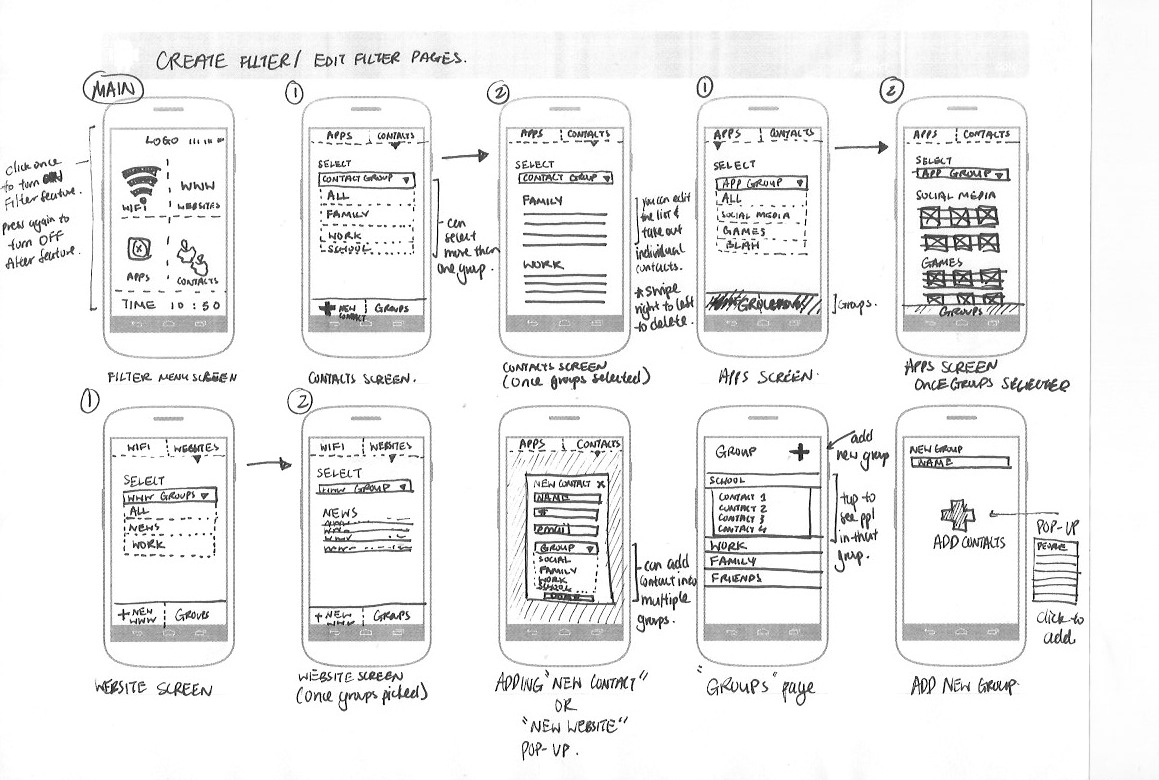 CREATE FILTER / EDIT FILTER PAGES.
MAIN
click once
to turn ON
Filter feature.
press again to
turn OFF
filter feature.
LOGO
WIFI
WWW
WEBSITES
APPS
CONTACTS
TIME 10:50
FILTER MENU SCREEN
1
APPS CONTACTS
SELECT
CONTACT GROUP
ALL
FAMILY
WORK
SCHOOL
+ NEW
CONTACT
GROUPS
can
select
more than
one group.
CONTACTS SCREEN.
2
APPS CONTACTS
SELECT
CONTACT GROUP
FAMILY
WORK
you can edit
the list &
take out
individual
contacts.
* Swipe
right to left
to delete.
CONTACTS SCREEN
(once groups selected)
1
APPS CONTACTS
SELECT
APP GROUP
ALL
SOCIAL MEDIA
GAMES
BLAH
Groups.
APPS SCREEN.
2
APPS CONTACTS
SELECT
APP GROUP
SOCIAL MEDIA
GAMES
GROUPS
APPS SCREEN
ONCE GROUPS SELECTED
1
WIFI WEBSITES
SELECT
WWW GROUPS
ALL
NEWS
WORK
+ NEW
WWW
GROUPS
WEBSITE SCREEN
2
WIFI WEBSITES
SELECT
WWW GROUP
NEWS
+ NEW
WWW
GROUPS
WEBSITE SCREEN
(once groups picked)
APPS CONTACTS
NEW CONTACT X
NAME
#
email
GROUP
SOCIAL
FAMILY
WORK
SCHOOL
can add
contact into
multiple
groups.
ADDING "NEW CONTACT"
OR
"NEW WEBSITE"
POP-UP.
GROUP +
SCHOOL
CONTACT 1
CONTACT 2
CONTACT 3
CONTACT 4
WORK
FAMILY
FRIENDS
add
new group
tap to
see ppl
in that
group.
"GROUPS" page
NEW GROUP
NAME
ADD CONTACTS
POP-UP
PEOPLE
click to
add
ADD NEW GROUP.